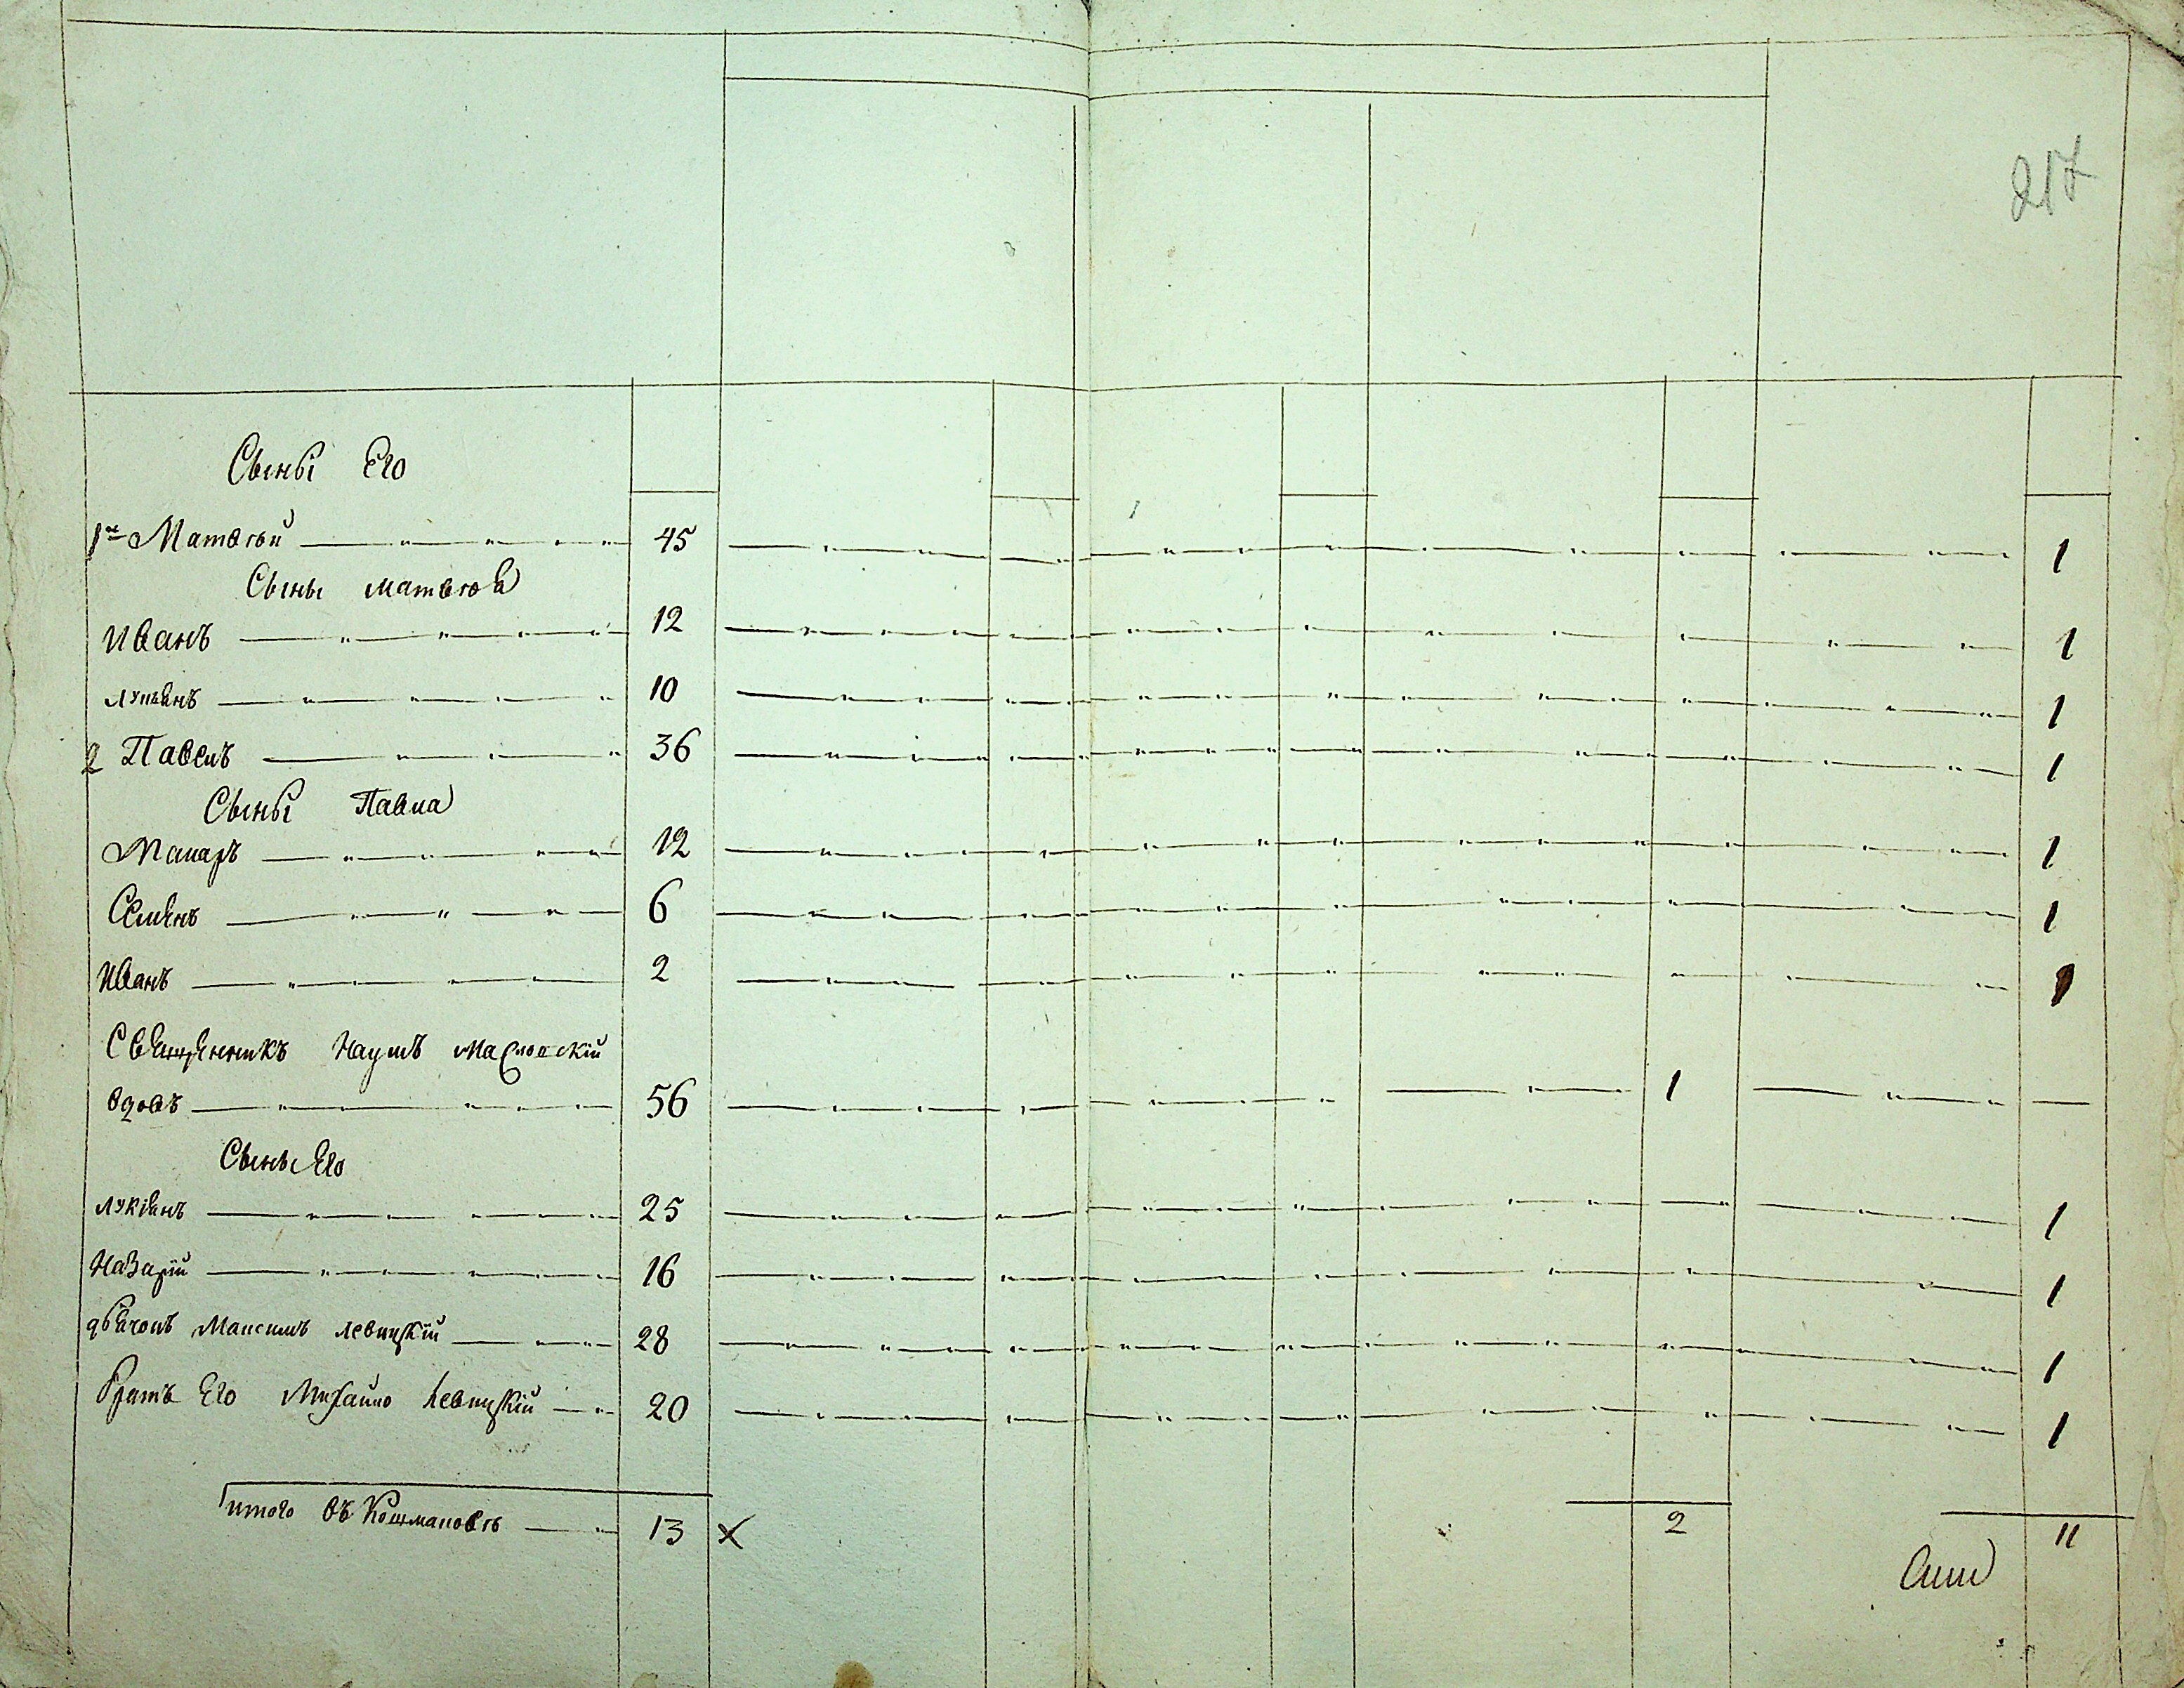 217
Сыны Его
1е Матвѣй 45 1
Сыны матвѣя
Иванъ 12 1
лукианъ 10 1
2 Павелъ 36 1
Сыны Павла
Макаръ 12 1
Семенъ 6 1
Иванъ 2 1
Священникъ Наумъ
вдовъ 56 1
Сыны Его
лукіянъ 25 1
Назарій 16 1
дьячокъ Максимъ левицкій 28 1
братъ Его Михайло левицкій 20 1
итого въ Кошмановѣ 13 x 2 11